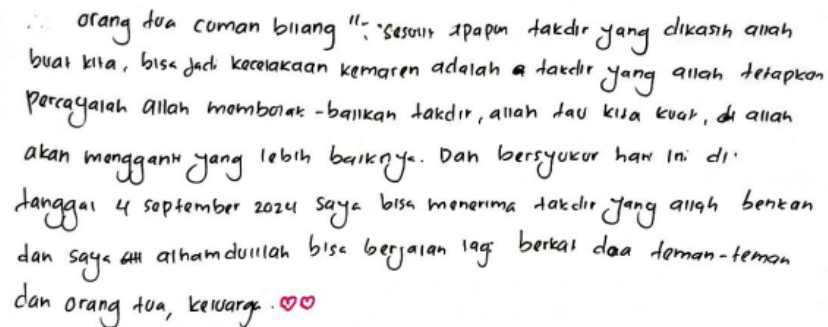 orang tua cuman bilang ": "sesulit apapun takdir yang dikasih allah
buat kita, bisa jadi kecelakaan kemaren adalah takdir yang allah tetapkan
percayalah allah membolak-balikan takdir, allah tau kita kuat, allah
akan mengganti yang lebih baiknya. Dan bersyukur hari ini di
tanggal 4 september 2024 saya bisa menerima takdir yang allah berikan
dan saya alhamdulillah bisa berjalan lagi berkat doa teman-teman
dan orang tua, keluarga. ♡♡